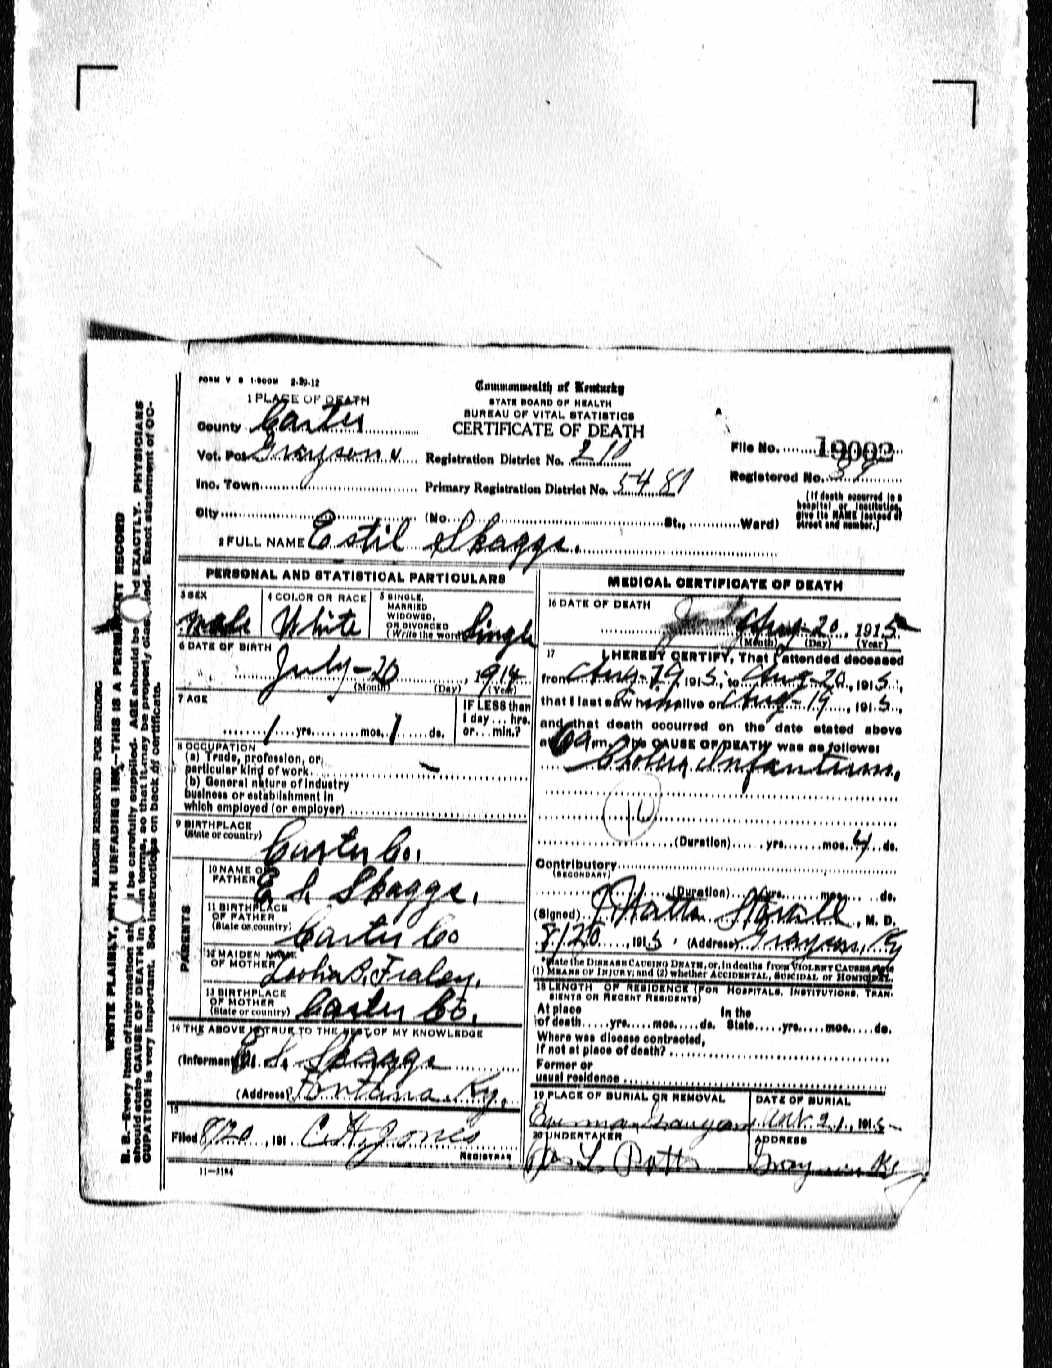 FORM V S 1-500M 2-29-12
Commonwealth of Kentucky
STATE BOARD OF HEALTH
BUREAU OF VITAL STATISTICS
CERTIFICATE OF DEATH
1 PLACE OF DEATH
County Carter
Vot. Pct Grayson
Inc. Town
City
Registration District No. 210
Primary Registration District No. 5481
(No. St., Ward)
File No. 19002
Registered No. 39
(If death occurred in a
hospital or institution,
give its NAME instead of
street and number.)
2 FULL NAME Estil Skaggs.
PERSONAL AND STATISTICAL PARTICULARS
3 SEX
Male
4 COLOR OR RACE
White
5 SINGLE,
MARRIED
WIDOWED,
OR DIVORCED
(Write the word) Single
6 DATE OF BIRTH
July-20, 1914
(Month) (Day) (Year)
7 AGE
1 yrs. mos. 1 ds.
IF LESS than
1 day ... hrs.
or ... min.?
8 OCCUPATION
(a) Trade, profession, or
particular kind of work
(b) General nature of industry
business or establishment in
which employed (or employer)
9 BIRTHPLACE
(State or country)
Carter Co.
PARENTS
10 NAME OF
FATHER
E S Skaggs.
11 BIRTHPLACE
OF FATHER
(State or country)
Carter Co
12 MAIDEN NAME
OF MOTHER
Fraley.
13 BIRTHPLACE
OF MOTHER
(State or country)
Carter Co.
14 THE ABOVE IS TRUE TO THE BEST OF MY KNOWLEDGE
(Informant) E S Skaggs
(Address) Fontana Ky.
15
Filed 8/20, 191 C H Jones
REGISTRAR
11-3184
MEDICAL CERTIFICATE OF DEATH
16 DATE OF DEATH
Aug-20, 1915
(Month) (Day) (Year)
17 I HEREBY CERTIFY, That I attended deceased
from Aug-19, 1915, to Aug-20, 1915,
that I last saw him alive on Aug-19, 1915,
and that death occurred on the date stated above
at 6 a m. The CAUSE OF DEATH was as follows:
Cholera Infantum.
(Duration) yrs. mos. 4 ds.
Contributory
(SECONDARY)
(Duration) yrs. mos. ds.
(Signed) J Watts Stovall, M. D.
8/20, 1915. (Address) Grayson, Ky
*State the DISEASE CAUSING DEATH, or, in deaths from VIOLENT CAUSES, state
(1) MEANS OF INJURY; and (2) whether ACCIDENTAL, SUICIDAL or HOMICIDAL.
18 LENGTH OF RESIDENCE (FOR HOSPITALS, INSTITUTIONS, TRAN-
SIENTS OR RECENT RESIDENTS)
At place In the
of death yrs. mos. ds. State yrs. mos. ds.
Where was disease contracted,
If not at place of death?
Former or
usual residence
19 PLACE OF BURIAL OR REMOVAL
Grayson
DATE OF BURIAL
21, 1915
20 UNDERTAKER
Jas L Potts
ADDRESS
Grayson Ky
MARGIN RESERVED FOR BINDING
WRITE PLAINLY, WITH UNFADING INK, THIS IS A PERMANENT RECORD
N. B.—Every item of information should be carefully supplied. AGE should be stated EXACTLY. PHYSICIANS
should state CAUSE OF DEATH in plain terms, so that it may be properly classified. Exact statement of OC-
CUPATION is very important. See instructions on back of certificate.